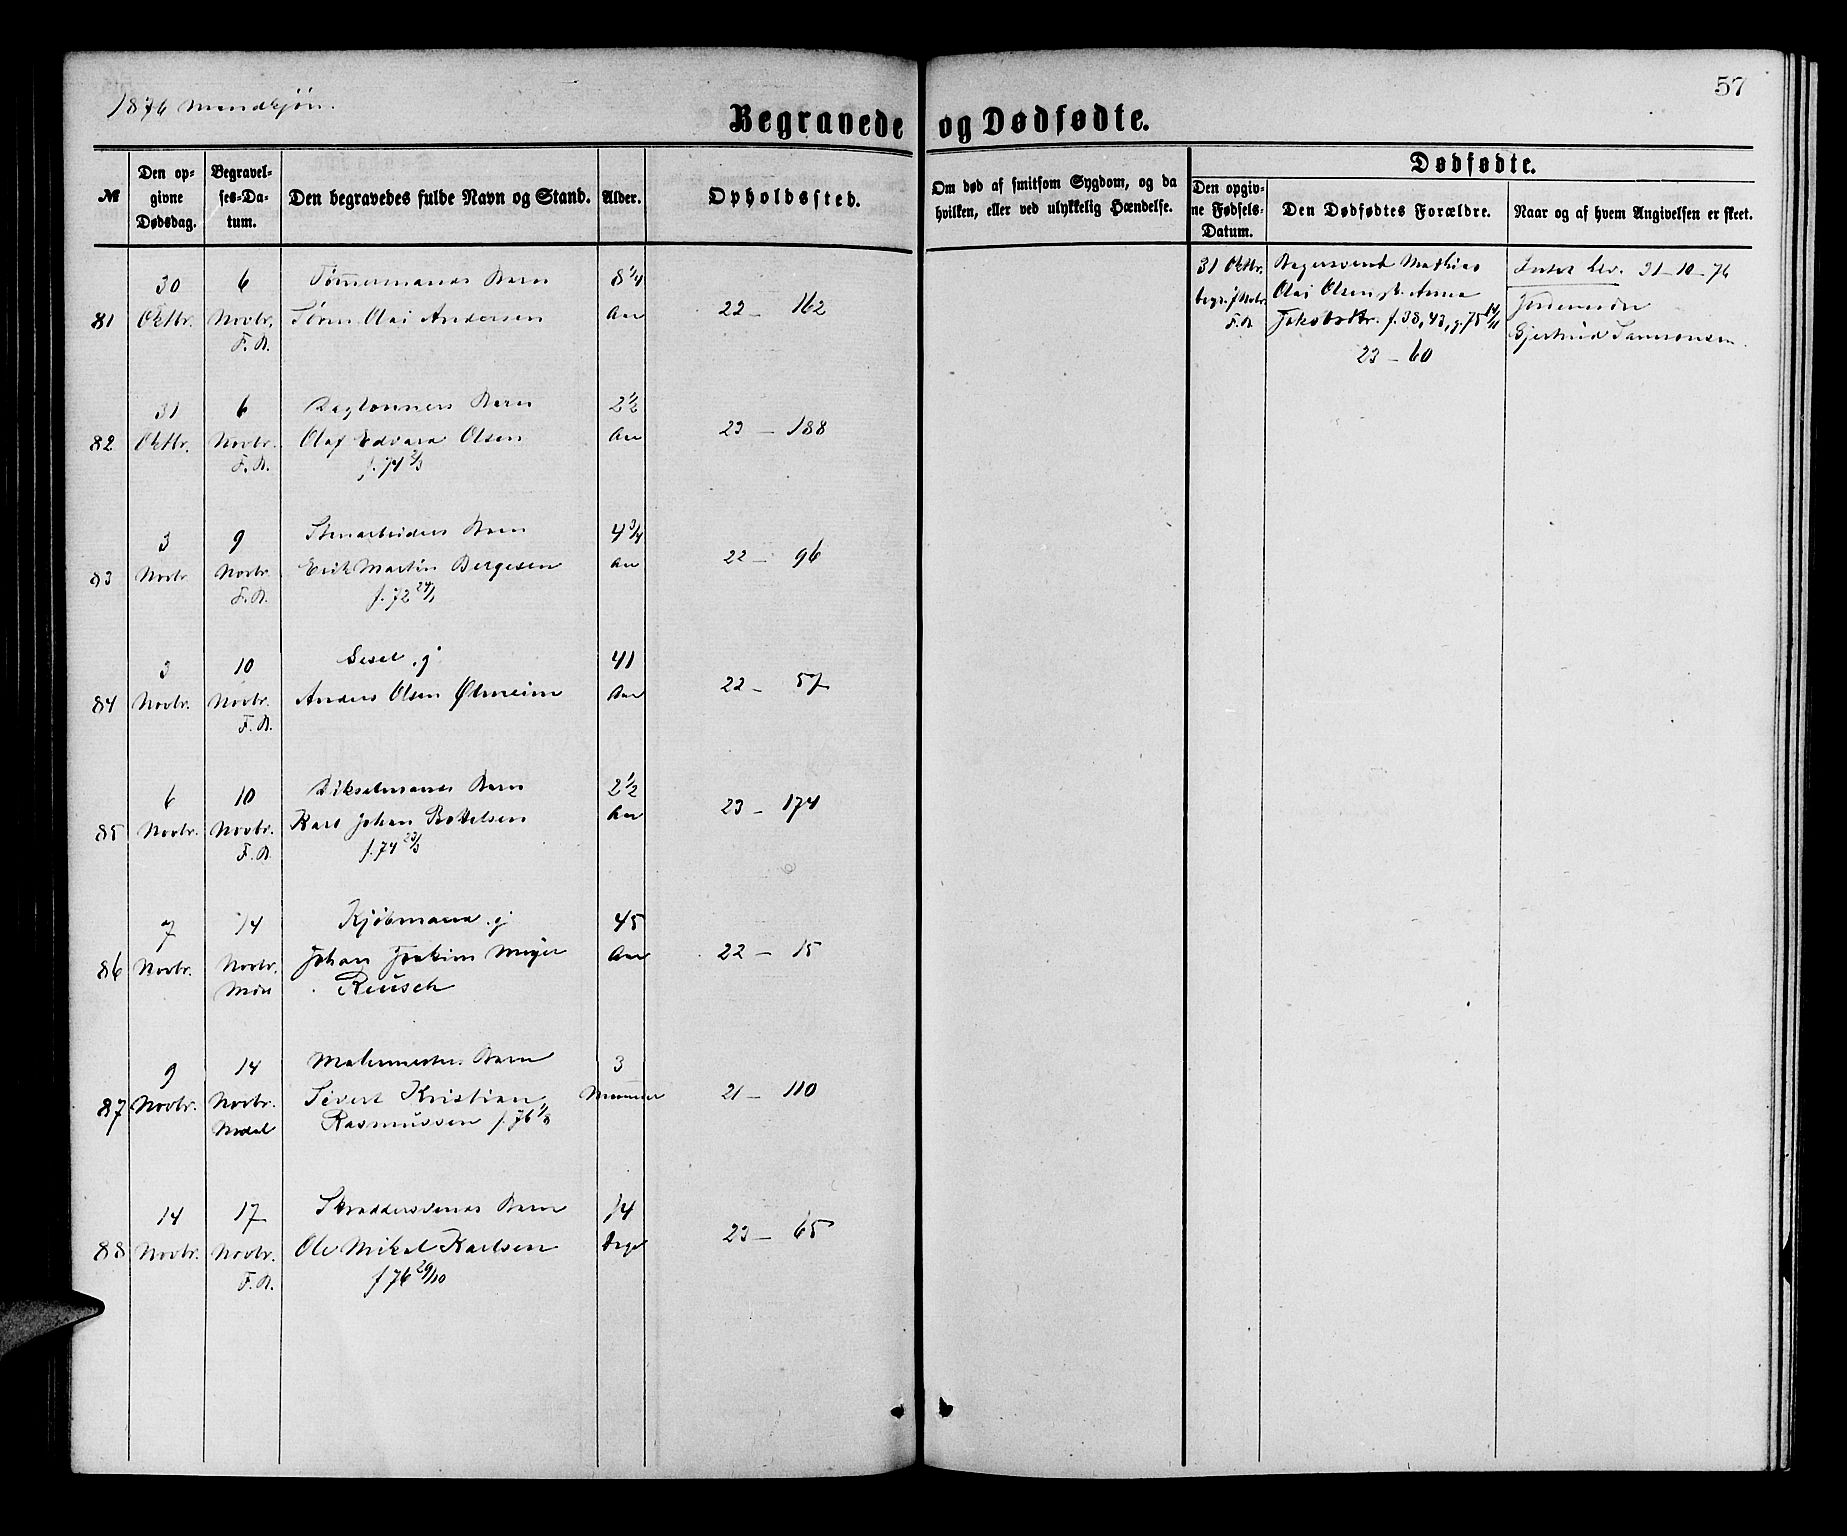 1876 Mandkjøn.
57
Begravede og Dødfødte.
№
Den op-
givne
Dødsdag.
Begravel-
ses-Da-
tum.
Den begravedes fulde Navn og Stand.
Alder.
Opholdssted.
Om død af smitsom Sygdom, og da
hvilken, eller ved ulykkelig Hændelse.
Dødfødte.
Den opgiv-
ne Fødsels-
Datum.
Den Dødfødtes Forældre.
Naar og af hvem Angivelsen er skeet.
81
30
Oktbr.
6
Novbr.
F.R.
Tømmermands Barn
Sören Olai Andersen
8 1/4
Aar
22 – 162
31 Oktbr.
begr. 7 Novbr.
F.R.
Bagersvend Mathias
Olai Olsen Anna
Jakobsdtr. f. 38, 43, g. 75 14/11
23 – 60
31–10–76
Jordemoder
Gjertrud Samsonsen.
82
31
Oktbr.
6
Novbr.
F.R.
Daglönners Barn
Olaf Edvard Olsen
f. 74 2/3
2 1/2
Aar
23 – 188
83
3
Novbr
9
Novbr.
F.R.
Stenarbeiders Barn
Erik Martin Bergesen
f. 72 24/1
4 3/4
Aar
22 – 96
84
3
Novbr.
10
Novbr.
F.R.
g.
Anders Olsen Ølmeim
41
Aar
22 – 57
85
6
Novbr.
10
Novbr.
F.R.
Barn
Karl Johan Bottelsen
f. 74 23/3
2 1/2
Aar
23 – 174
86
7
Novbr.
14
Novbr.
Kjöbmand g
Johan Joakim Meyer
Reusch
45
Aar
22 – 15
87
9
Novbr.
14
Novbr.
Malermesters Barn
Sivert Kristian
Rasmussen f. 76 1/8
3
Maaneder
21 – 110
88
14
Novbr.
17
Novbr.
F.R.
Skræddersvends Barn
Ole Mikal Karlsen
f 76 29/10
14
Dage
23 – 65